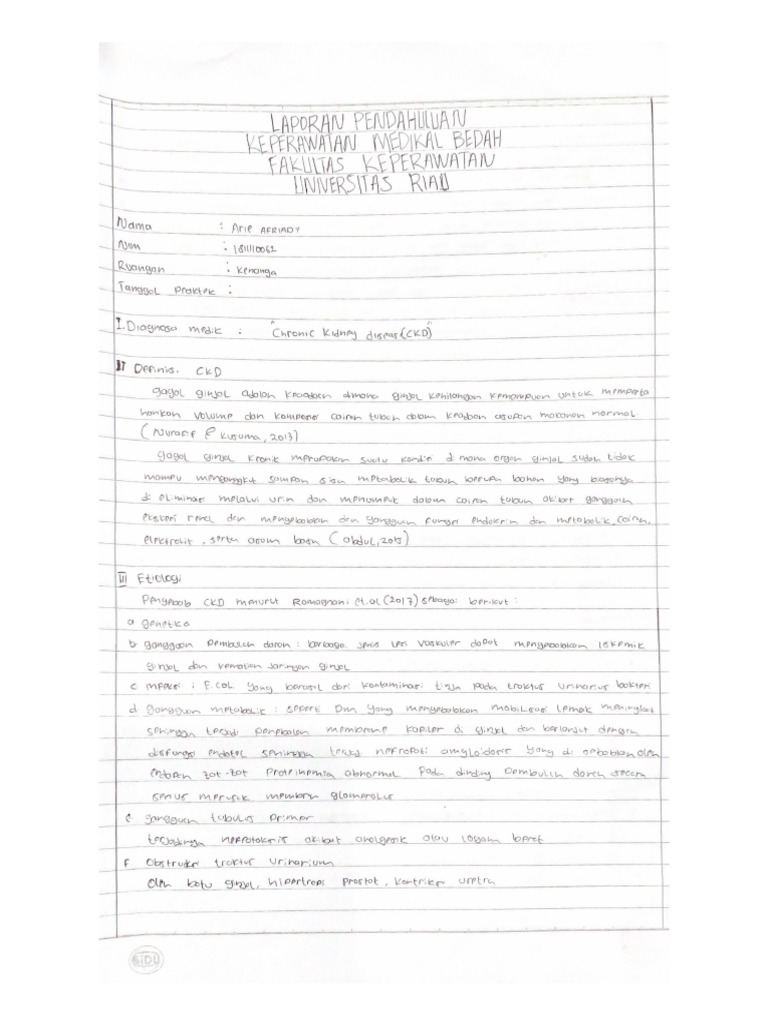 LAPORAN PENDAHULUAN
KEPERAWATAN MEDIKAL BEDAH
FAKULTAS KEPERAWATAN
UNIVERSITAS RIAU
Nama : Arie AFRIADY
Nim : 1811110062
Ruangan : Kenanga
Tanggal Praktek :
I. Diagnosa medik : "Chronic Kidney diseas (CKD)"
II Definisi CKD
gagal ginjal adalah keadaan dimana ginjal kehilangan kemampuan untuk memperta
hankan volume dan komposisi cairan tubuh dalam keadaan asupan makanan normal.
(Nurarif & Kusuma, 2013)
gagal ginjal kronik merupakan suatu kondisi di mana organ ginjal sudah tidak
mampu mengangkut sampah sisa metabolik tubuh berupa bahan yang biasanya
di eliminasi melalui urin dan menumpuk dalam cairan tubuh akibat gangguan
ekskresi renal dan menyebabkan dan gangguan fungsi endokrin dan metabolik, cairan,
elektrolit, serta asam basa (abdul, 2015)
III Etiologi
Penyebab CKD menurut Romagnani et.al (2017) sebagai berikut :
a genetika
b gangguan Pembuluh darah : berbagai jenis lesi vaskuler dapat menyebabkan iskemik
ginjal dan kematian jaringan ginjal
c infeksi : E.coli yang berasal dari kontaminasi tinja pada traktus urinarius bakteri
d gangguan metabolik : seperti Dm yang menyebabkan mobilisasi lemak meningkat
sehingga terjadi penebalan membrane kapiler di ginjal dan berlanjut dengan
disfungsi endotel sehingga terjadi nefropati amyloidosis yang di sebabkan oleh
endapan zat-zat Proteinemia abnormal pada dinding Pembuluh darah secara
serius merusak membran glomerolus
e gangguan tubulus primer
terjadinya nefrotoksis akibat analgesik atau logam berat
f Obstruksi traktus urinarium
Oleh batu ginjal, hipertropi prostat, kontriksi uretra
SiDU